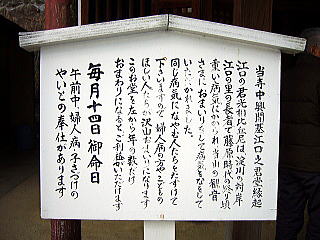 当寺中興開基江口之君堂縁起
江口の君光相比丘尼は、淀川の対岸
江口の里の長者で藤原時代の終り頃
重い病気にかかられ当山の観音
さまにおまいりをして病気をなおして
いただかれました。
同じ病気になやむ人たちをたすけて
下さいますので婦人病の方やこどもの
ほしい人たちが沢山おまいりになります
このお堂を左から年の数だけ
おまわりになるとご利益がいただけます
毎月十四日 御命日
午前中、婦人病、子さづけの
やいとの奉仕があります